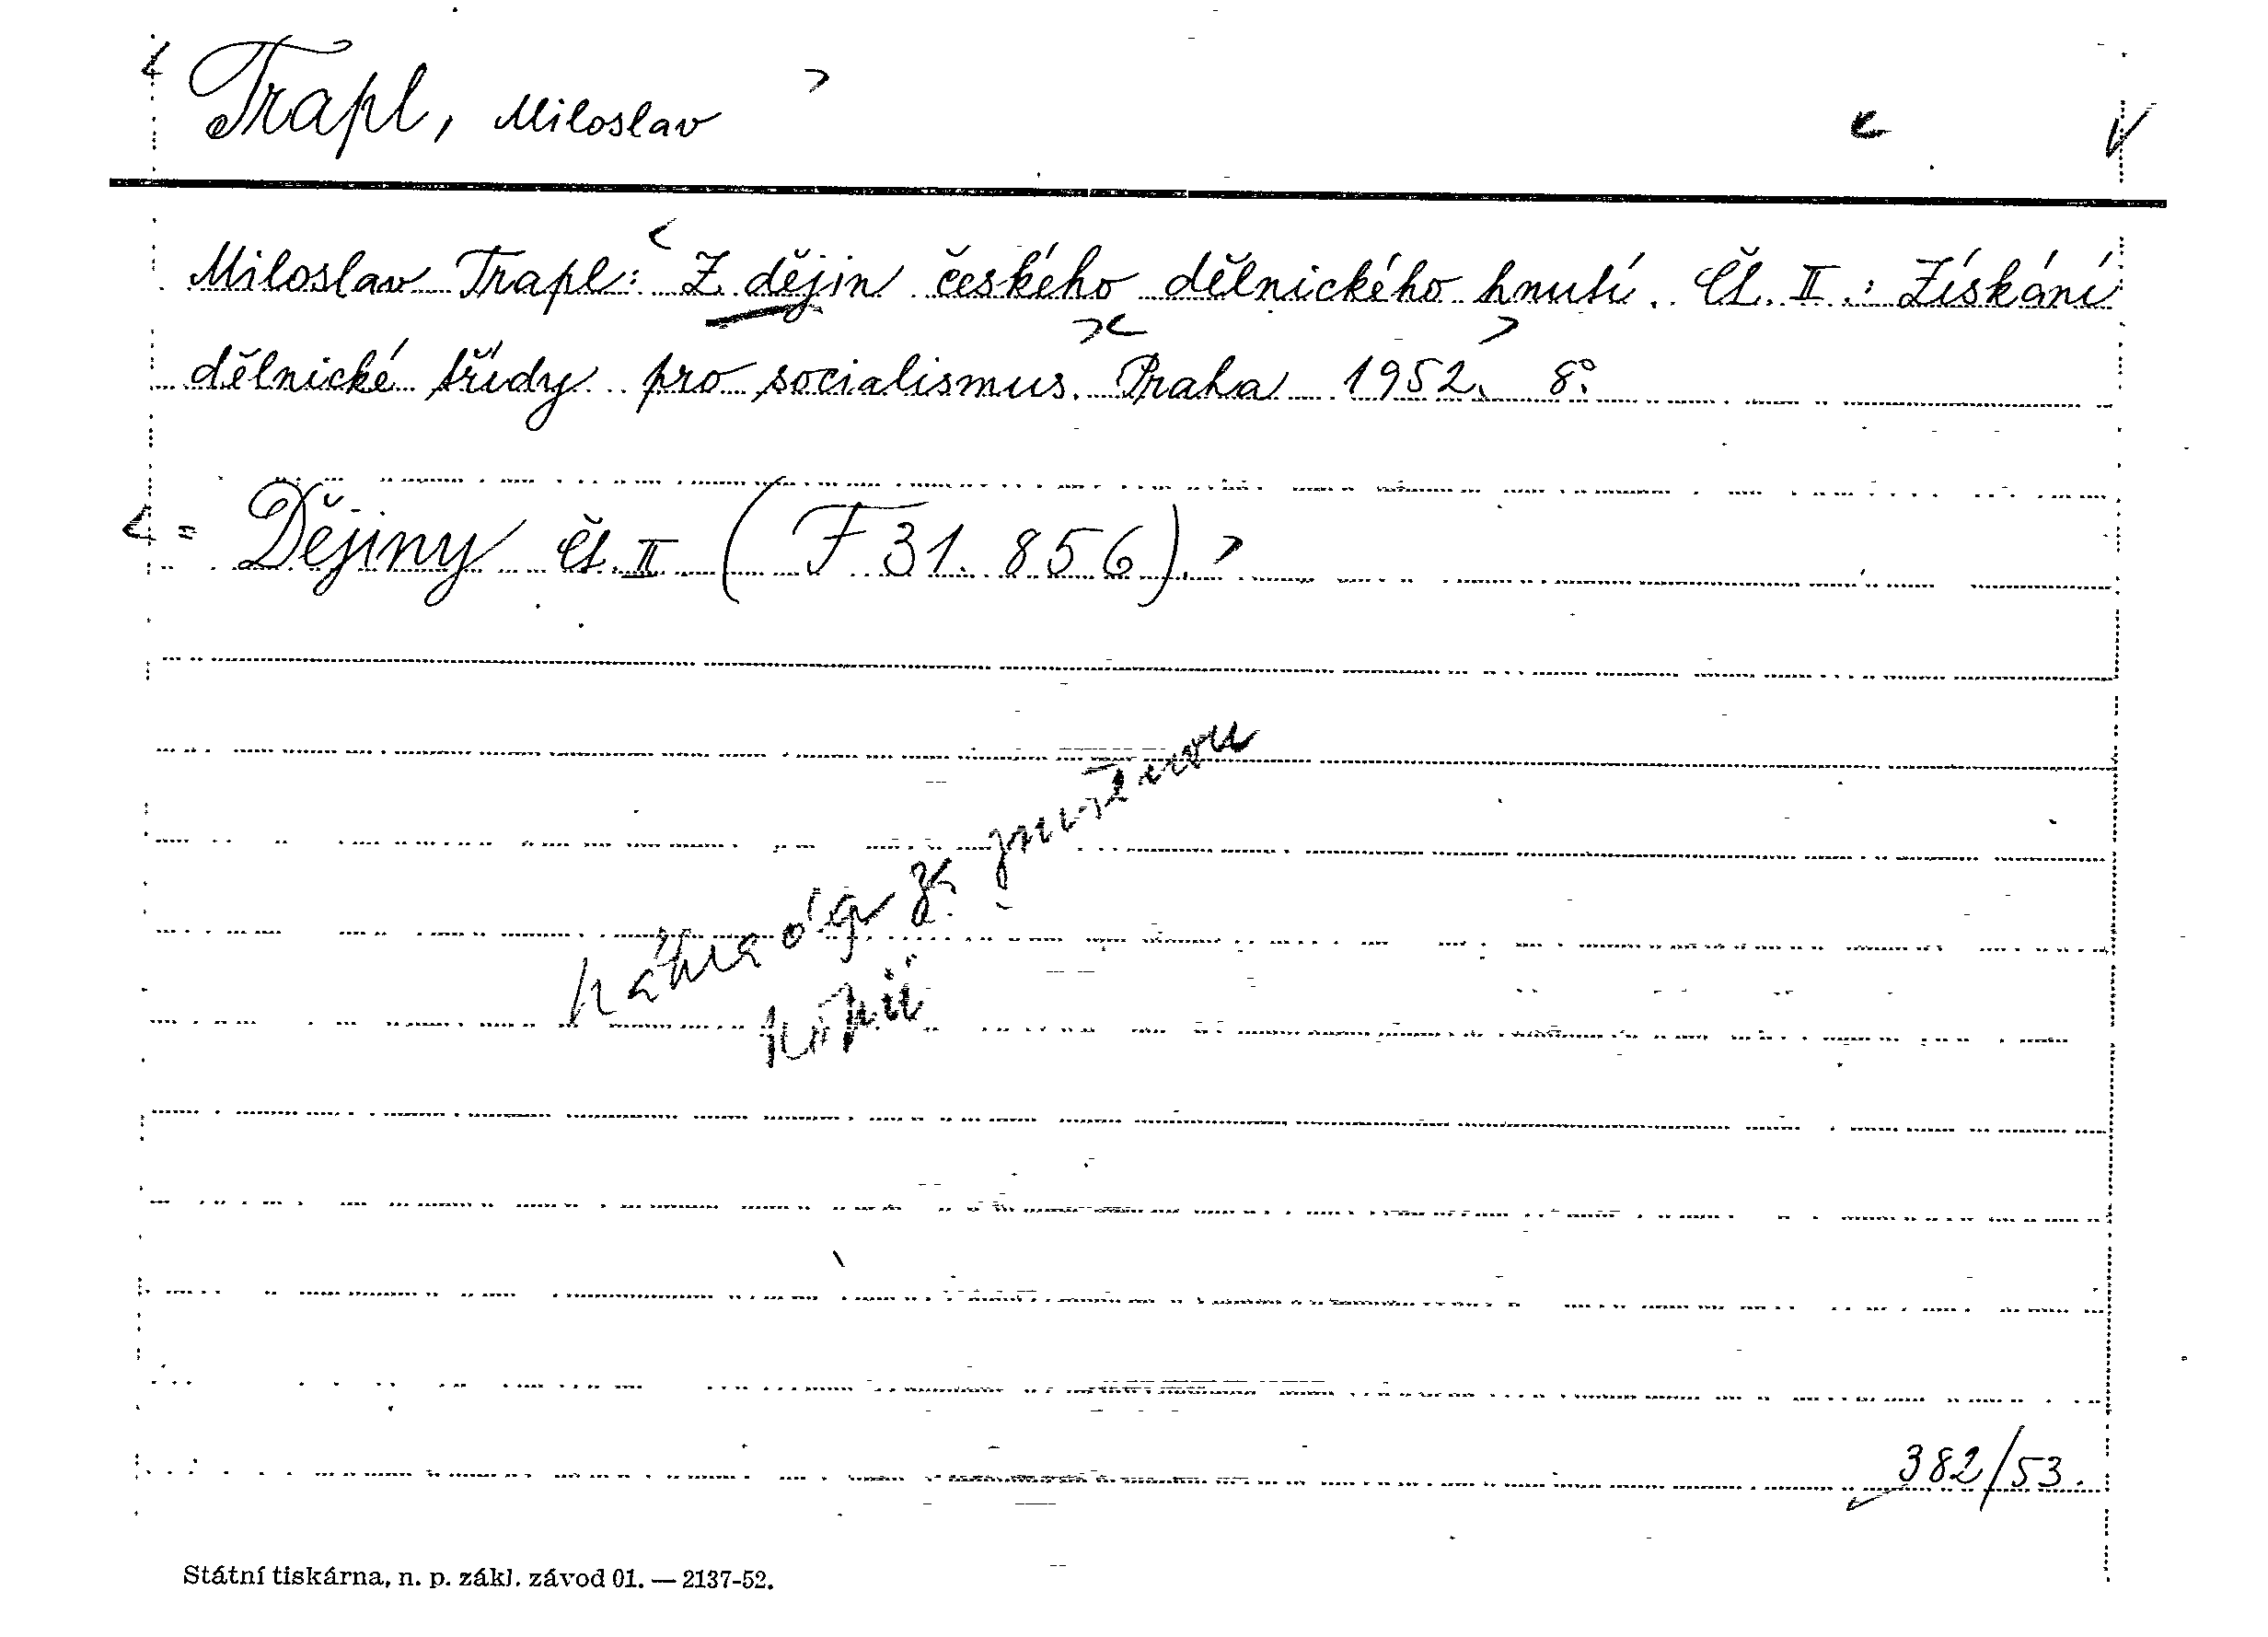 Trapl, Miloslav
Miloslav Trapl: Z dějin českého dělnického hnutí. Čś. II.: Získání
dělnické třídy pro socialismus. Praha 1952. 8°.
= Dějiny Čś. II (F 31.856).
náhrada za
382/53.
Státní tiskárna, n. p. zákl. závod 01. — 2137-52.